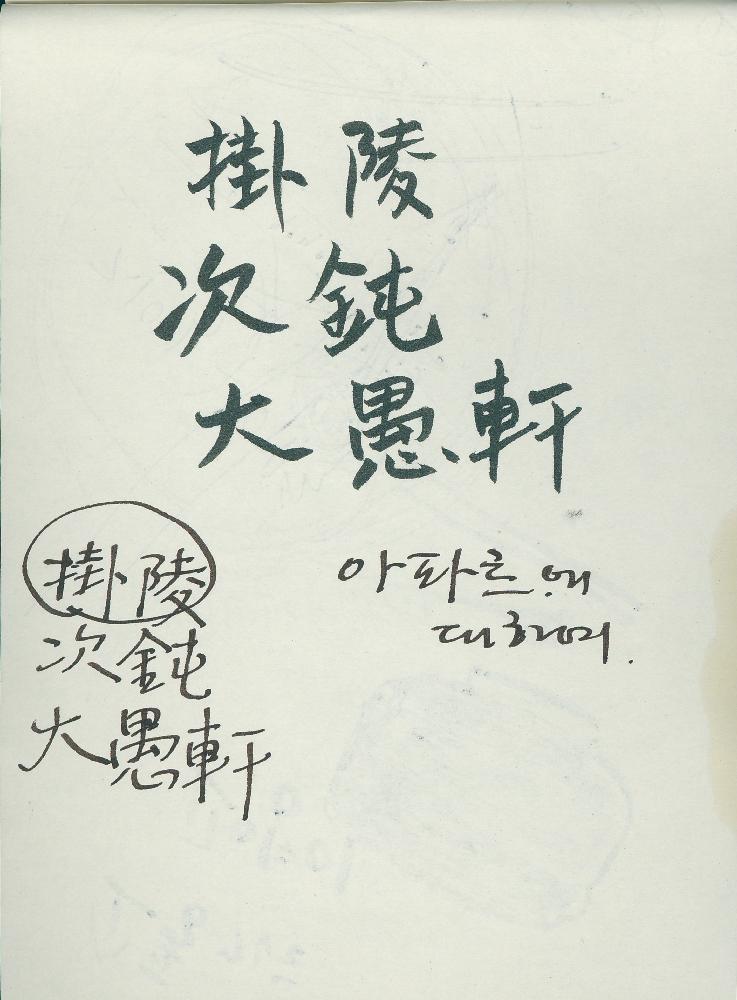 掛陵
次鈍
大愚軒
掛陵
次鈍
大愚軒
아파르에
대하여.